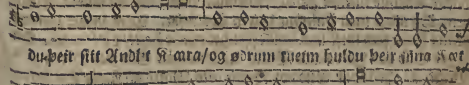 Du-þeir sitt Andlit Kiæra/og ødrum tueim huldu þeir sijna